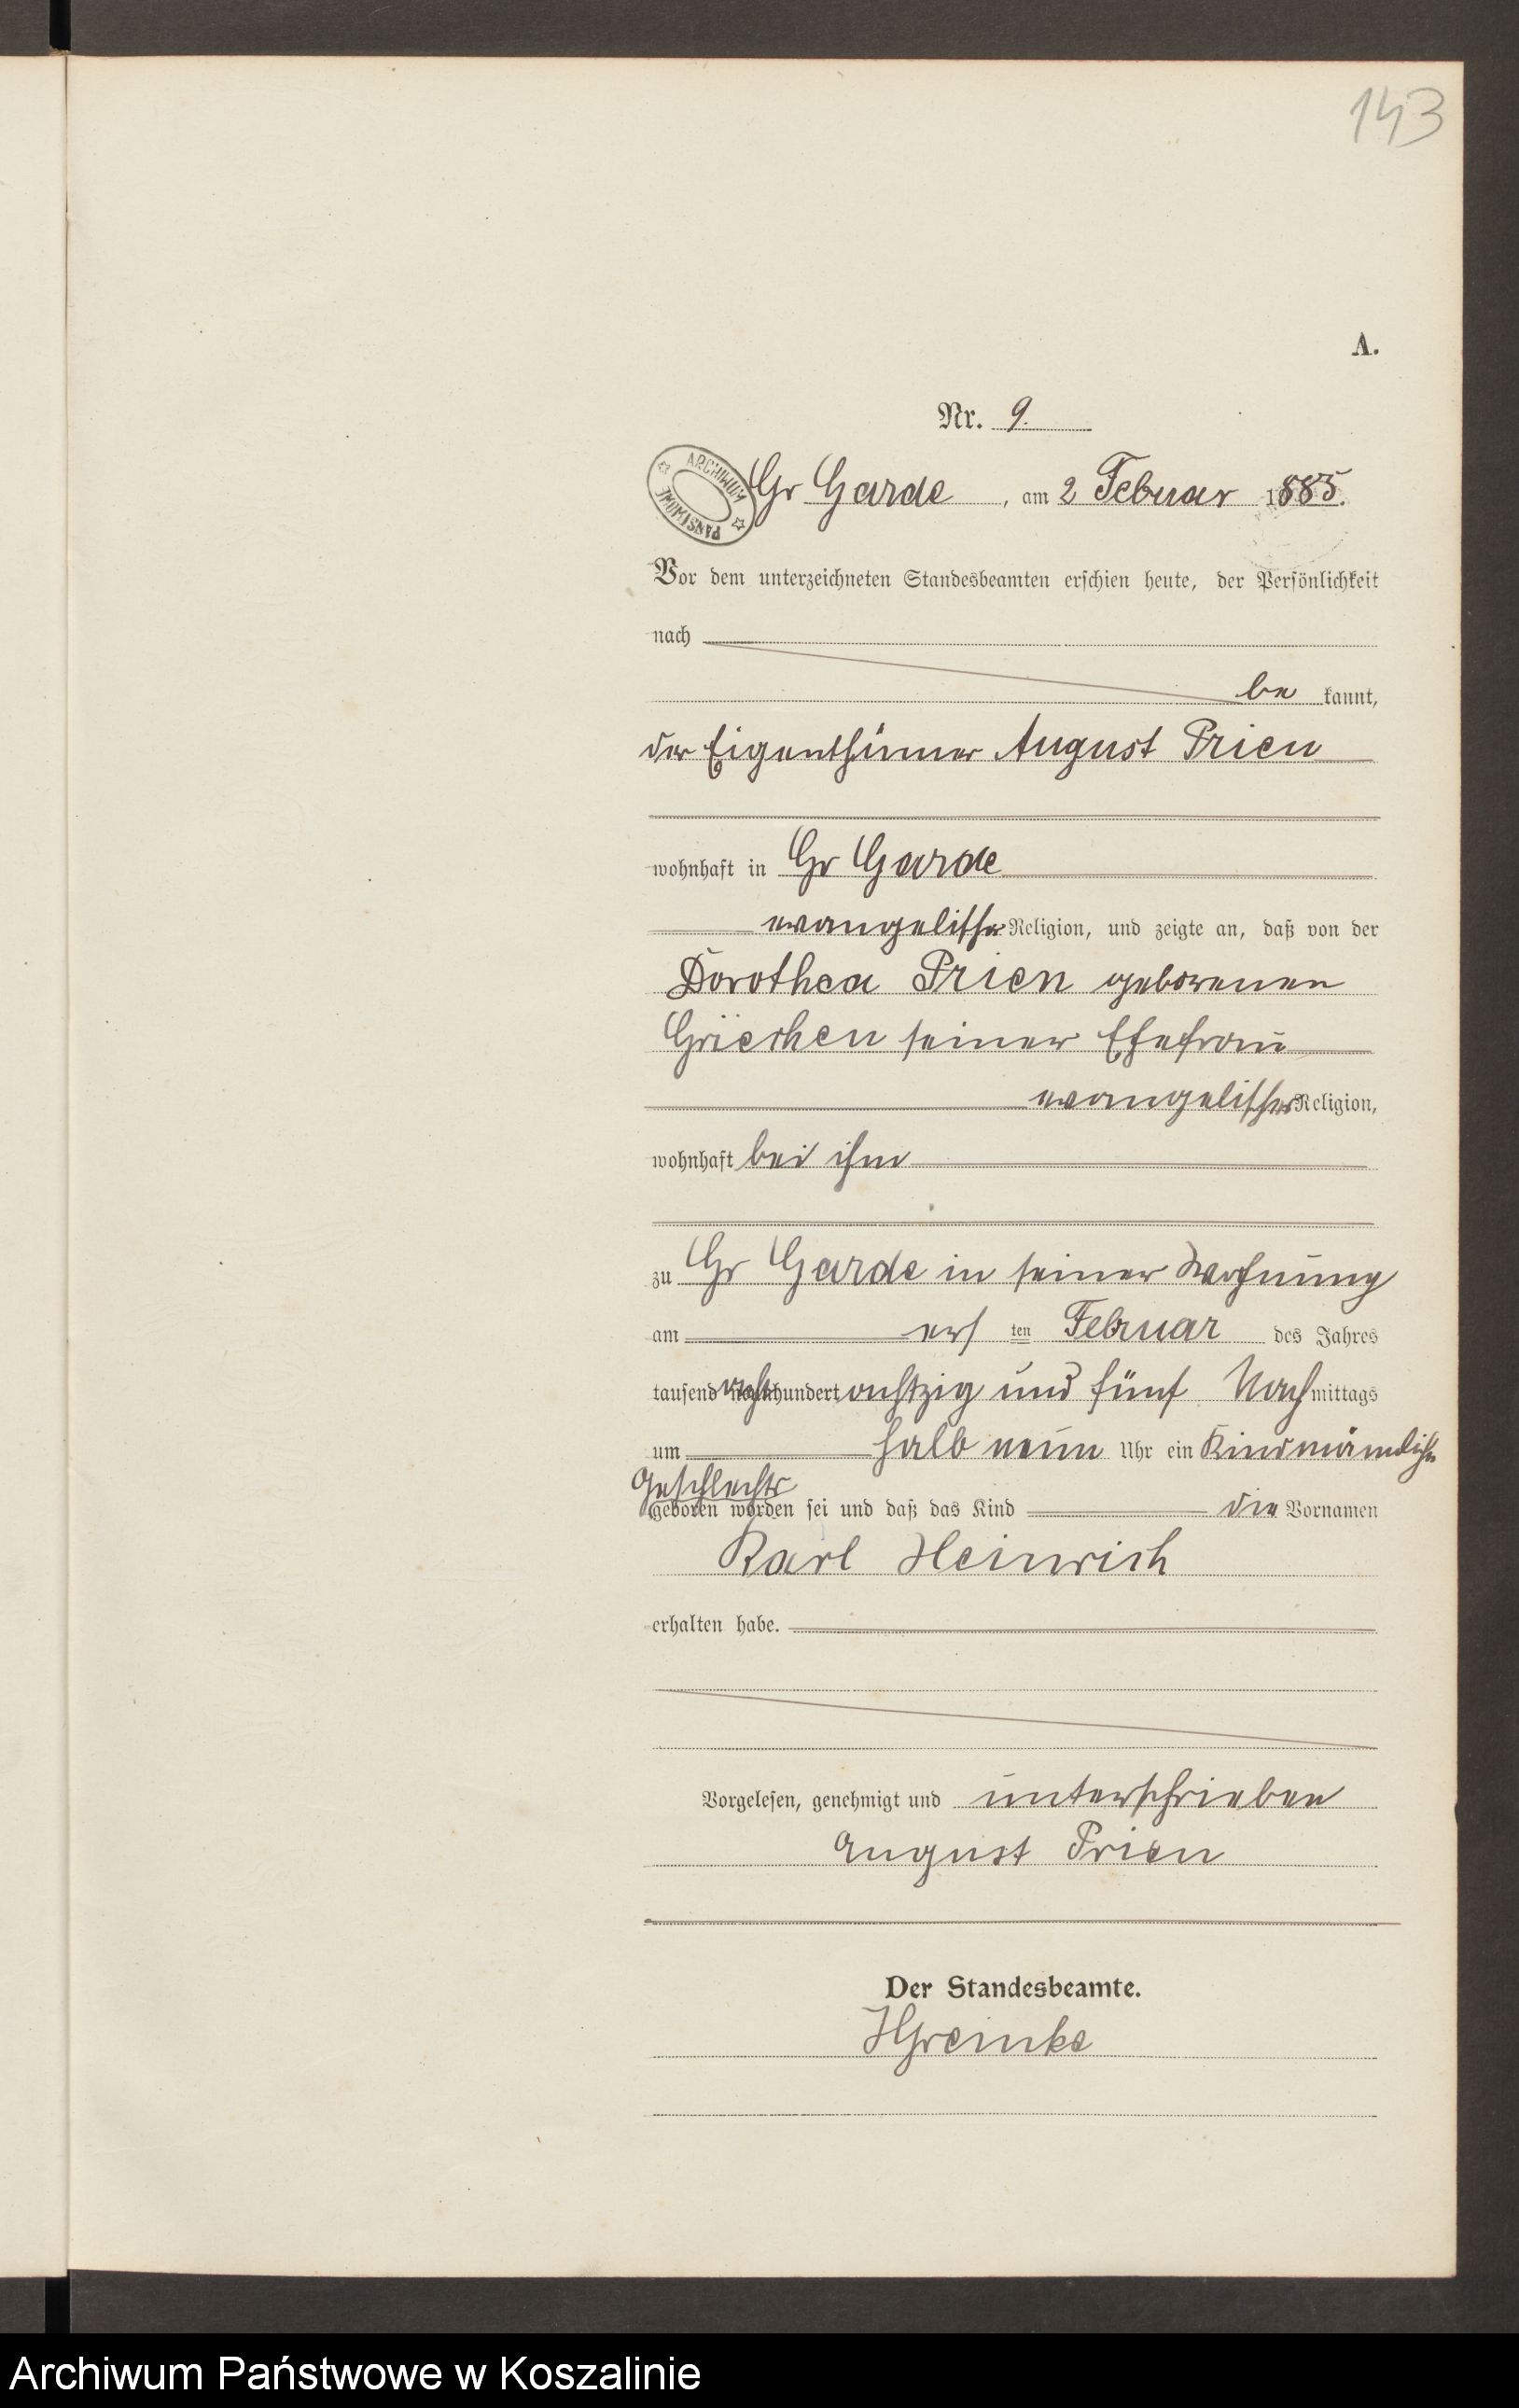 143
A.
Nr. 9.
ARCHIWUM PAŃSTWOWE
Gr Garde, am 2 Februar 1885.
Vor dem unterzeichneten Standesbeamten erschien heute, der Persönlichkeit
nach
be kannt,
der Eigenthümer August Prien
wohnhaft in Gr Garde
evangelischer Religion, und zeigte an, daß von der
Dorothea Prien geborenen
seiner Ehefrau
evangelischer Religion,
wohnhaft bei ihm
zu Gr Garde in seiner Wohnung
am ers ten Februar des Jahres
tausend acht hundert achtzig und fünf Nachmittags
um halb neun Uhr ein Kind männlichen
Geschlechts
geboren worden sei und daß das Kind die Vornamen
Karl Heinrich
erhalten habe.
Vorgelesen, genehmigt und unterschrieben
August Prien
Der Standesbeamte.
HGreinke
Archiwum Państwowe w Koszalinie